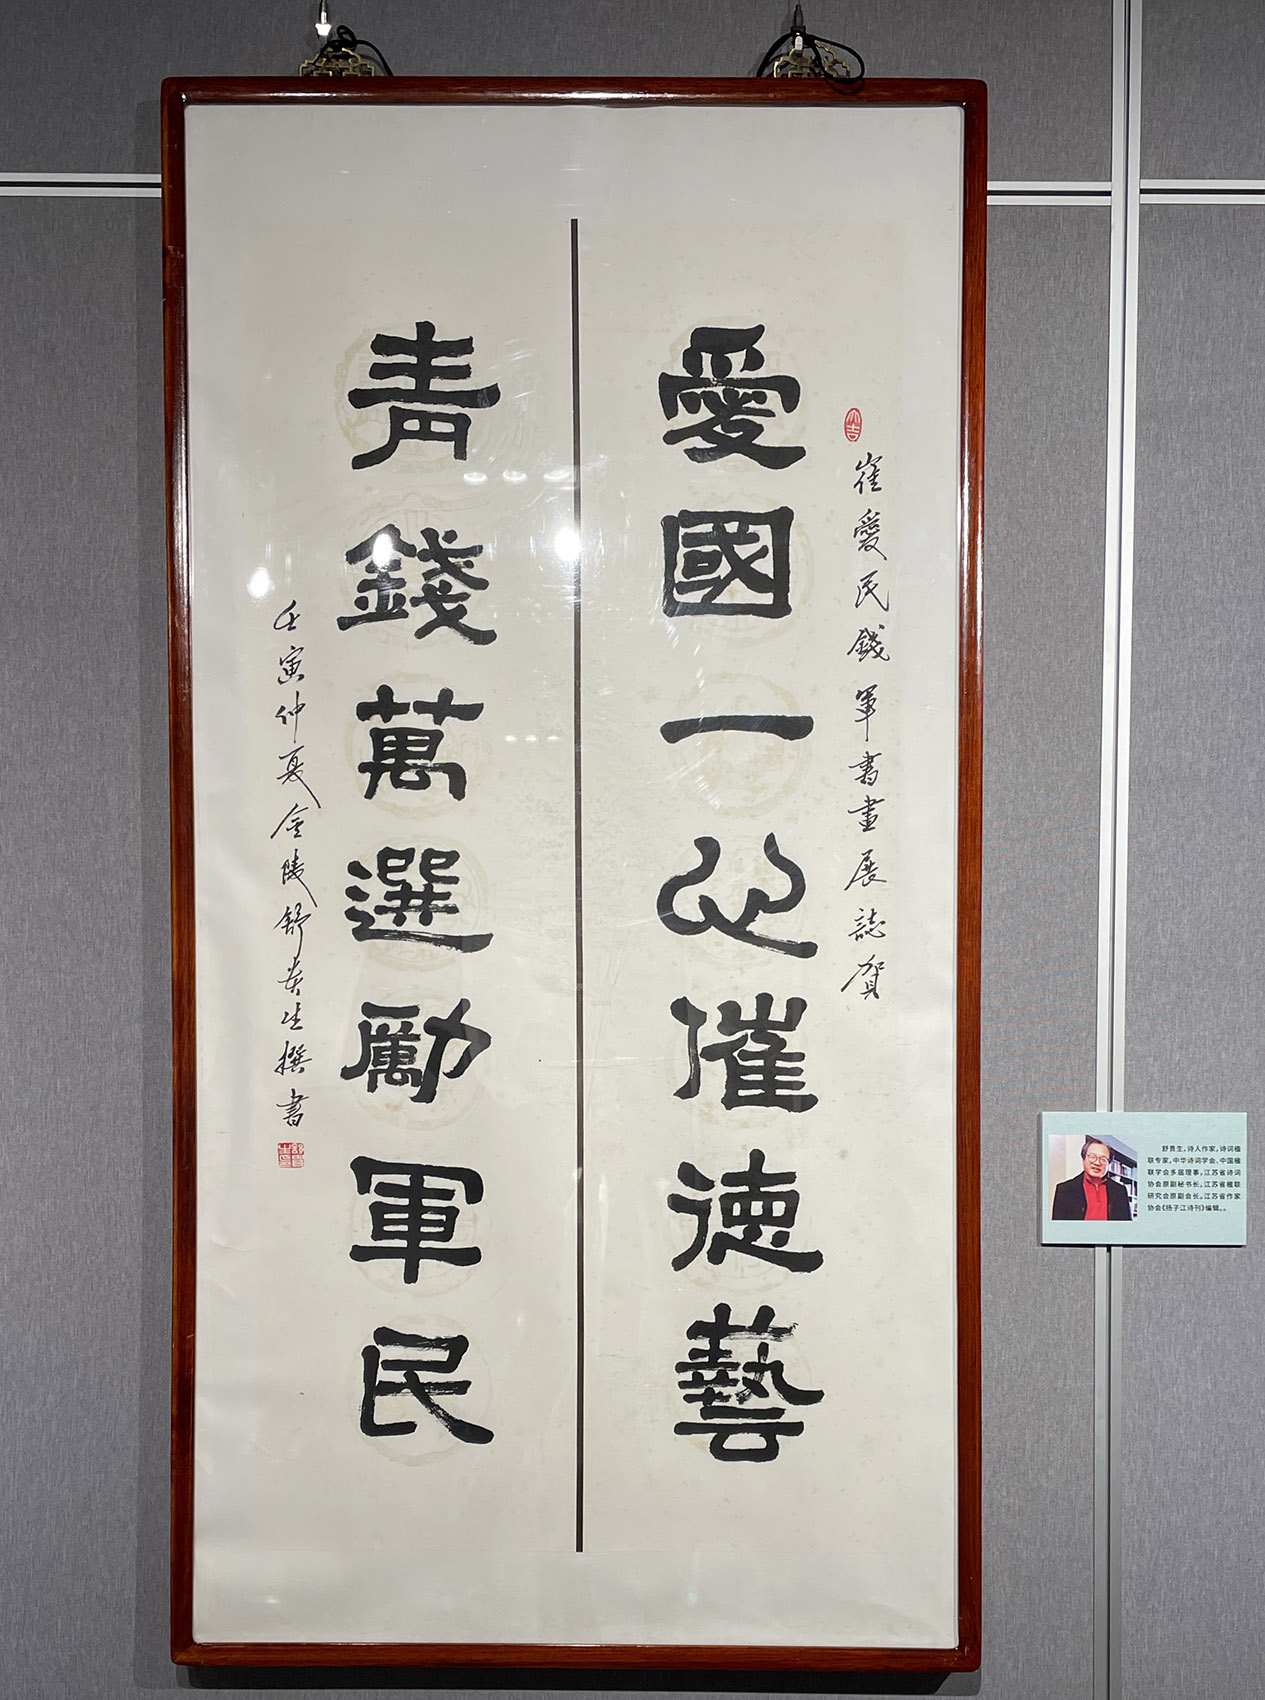 大吉
崔愛民錢軍書畫展誌賀
愛國一心催德藝
青錢萬選勵軍民
壬寅仲夏金陵舒貴生撰書
舒贵生，诗人作家，诗词楹
联专家，中华诗词学会、中国楹
联学会多届理事，江苏省诗词
协会原副秘书长，江苏省楹联
研究会原副会长。江苏省作家
协会《扬子江诗刊》编辑。。